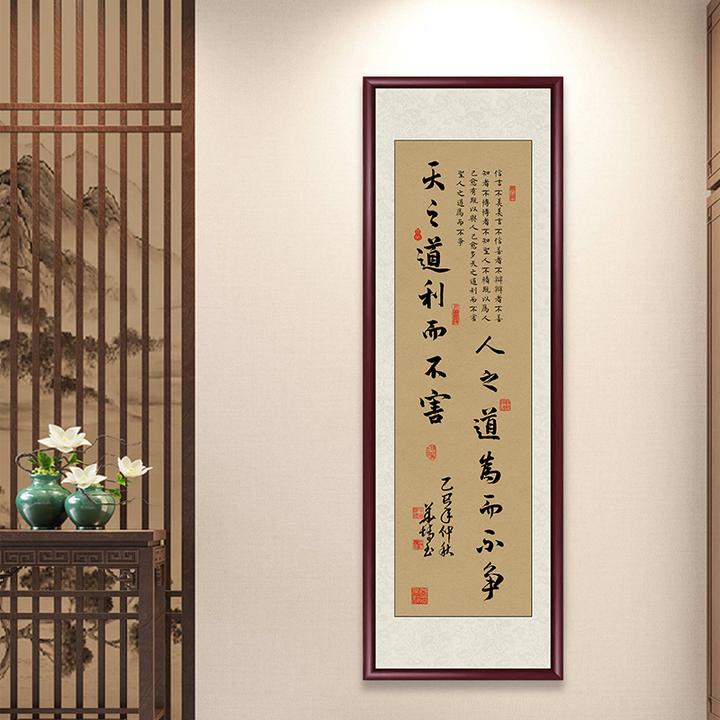 信言不美美言不信善者不辯辯者不善
知者不博博者不知聖人不積既以為人
己愈有既以與人己愈多天之道利而不害
聖人之道為而不争
人之道為而不争
天之道利而不害
乙巳年仲秋